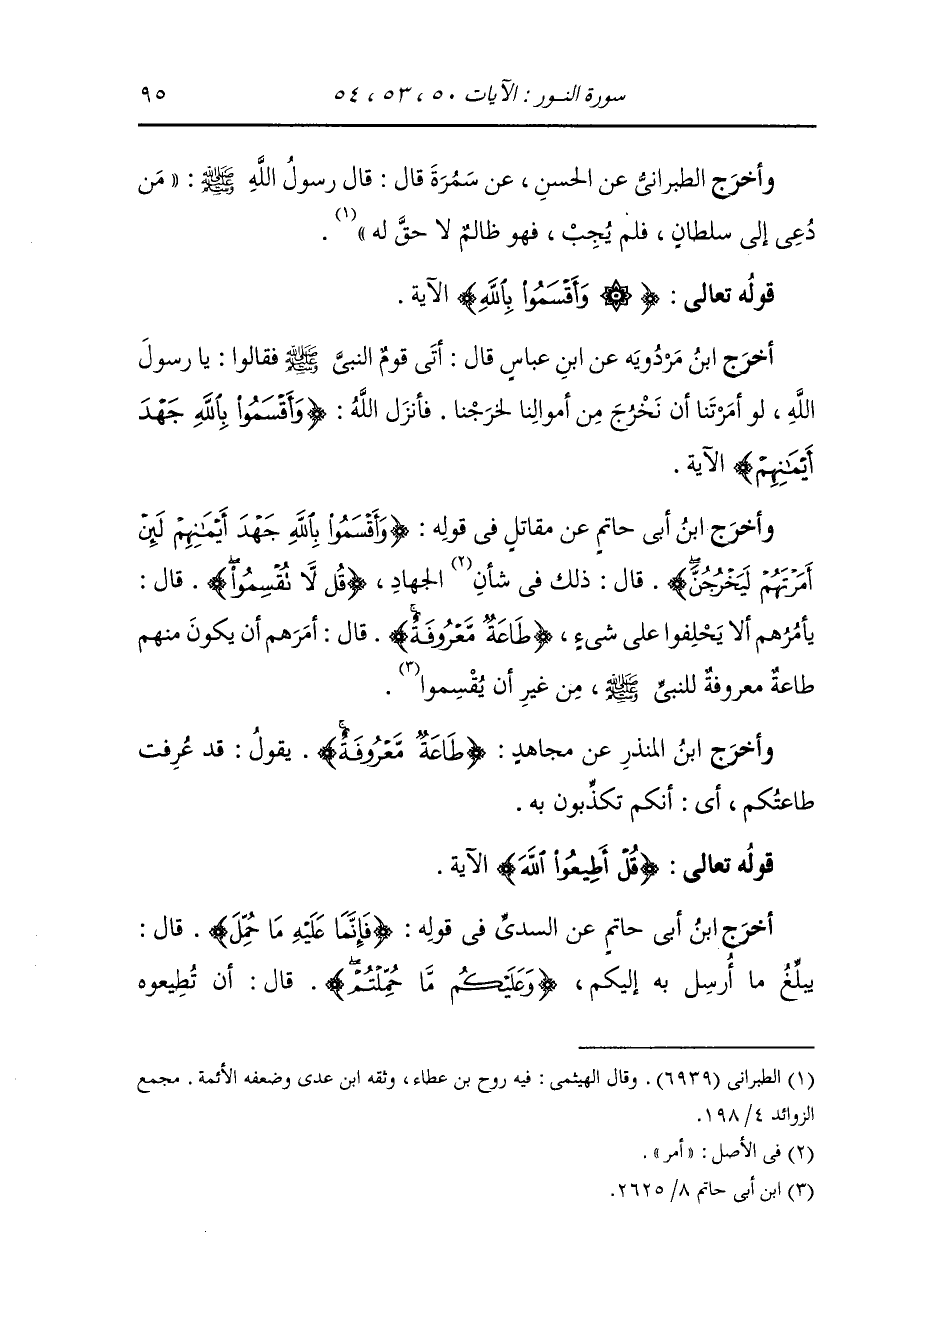 سورة النور : الآيات ٥٠ ، ٥٣ ، ٥٤ ٩٥
وأخرَج الطبرانىُّ عن الحسنِ ، عن سَمُرَةَ قال : قال رسولُ اللَّهِ ﷺ : « مَن
دُعِى إلى سلطانٍ ، فلم يُجِبْ ، فهو ظالمٌ لا حقَّ له »(١) .
قولُه تعالى : ﴿ ۞ وَأَقْسَمُوا۟ بِٱللَّهِ﴾ الآية .
أخرَج ابنُ مَرْدُويَه عن ابنِ عباسٍ قال : أتَى قومٌ النبىَّ ﷺ فقالوا : يا رسولَ
اللَّهِ ، لو أمَرْتَنا أن نَخْرُجَ مِن أموالِنا لخرَجْنا . فأنزَل اللَّهُ : ﴿وَأَقْسَمُوا۟ بِٱللَّهِ جَهْدَ
أَيْمَٰنِهِمْ﴾ الآية .
وأخرَج ابنُ أبى حاتمٍ عن مقاتلٍ فى قولِه : ﴿وَأَقْسَمُوا۟ بِٱللَّهِ جَهْدَ أَيْمَٰنِهِمْ لَئِنْ
أَمَرْتَهُمْ لَيَخْرُجُنَّۖ﴾ . قال : ذلك فى شأنِ(٢) الجهادِ ، ﴿قُل لَّا تُقْسِمُوا۟ۖ﴾ . قال :
يأمُرُهم ألا يَحْلِفوا على شىءٍ ، ﴿طَاعَةٌ مَّعْرُوفَةٌۚ﴾ . قال : أمَرَهم أن يكونَ منهم
طاعةٌ معروفةٌ للنبىِّ ﷺ ، مِن غيرِ أن يُقْسِموا(٣) .
وأخرَج ابنُ المنذرِ عن مجاهدٍ : ﴿طَاعَةٌ مَّعْرُوفَةٌۚ﴾ . يقولُ : قد عُرِفت
طاعتُكم ، أى : أنكم تكذِّبون به .
قولُه تعالى : ﴿قُلْ أَطِيعُوا۟ ٱللَّهَ﴾ الآية .
أخرَج ابنُ أبى حاتمٍ عن السدىِّ فى قولِه : ﴿فَإِنَّمَا عَلَيْهِ مَا حُمِّلَ﴾ . قال :
يبلِّغُ ما أُرسِل به إليكم ، ﴿وَعَلَيْكُم مَّا حُمِّلْتُمْۖ﴾ . قال : أن تُطِيعوه
(١) الطبرانى (٦٩٣٩) . وقال الهيثمى : فيه روح بن عطاء ، وثقه ابن عدى وضعفه الأئمة . مجمع
الزوائد ٤/ ١٩٨.
(٢) فى الأصل : « أمر » .
(٣) ابن أبى حاتم ٨/ ٢٦٢٥.